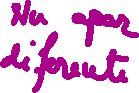 Nu apar
diferente